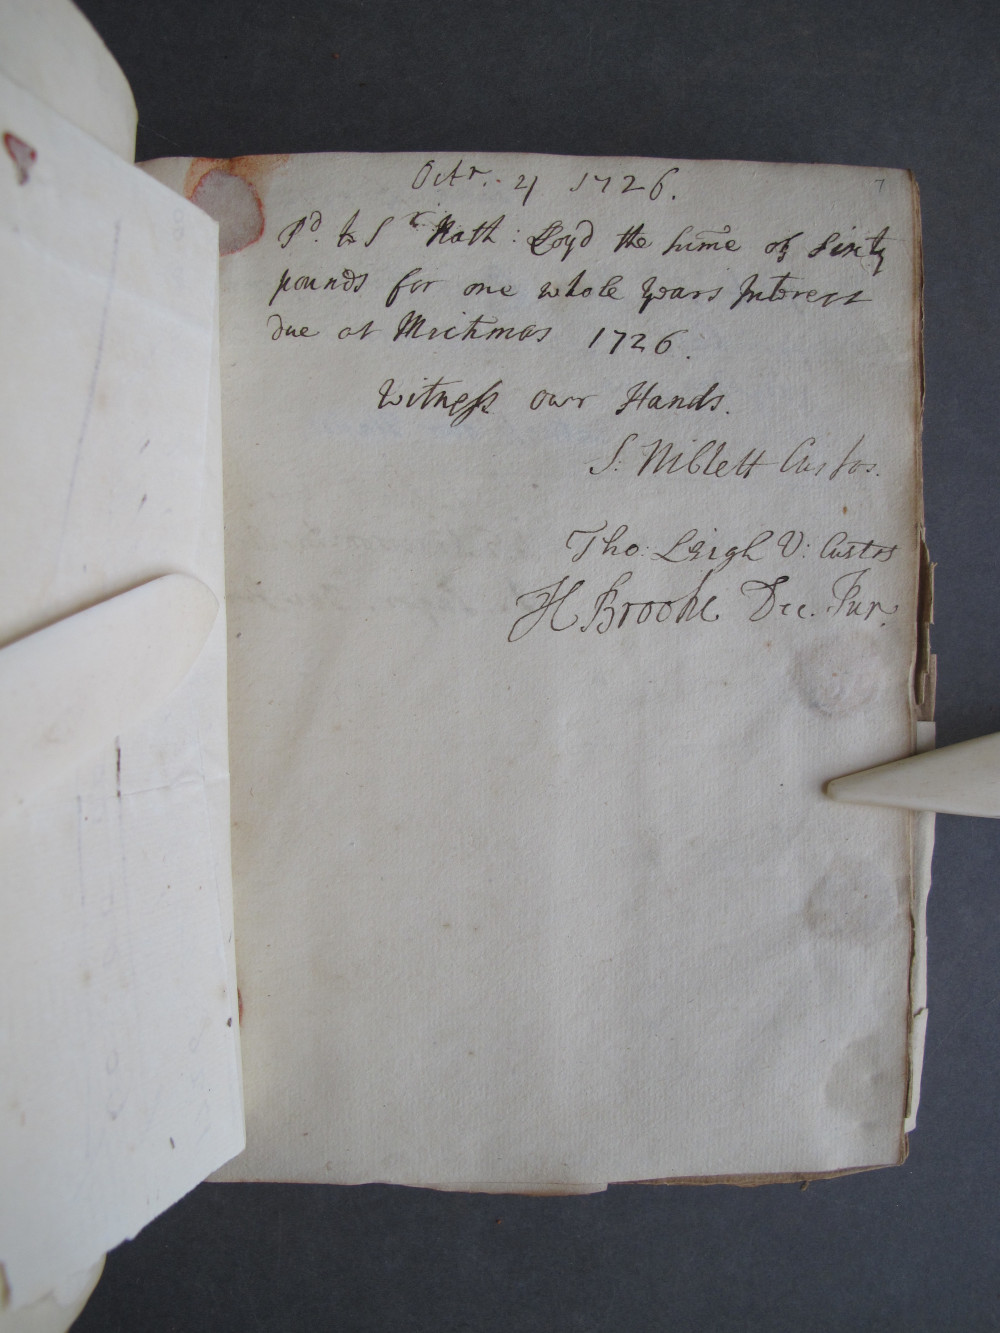 7
Octr. 4 1726.
Pd. to Sr Nath: Loyd the sume of Sixty
pounds for one whole years Interest
due at Michmas 1726.
Witness our Hands.
S: Niblett Custos.
Tho: Leigh V: Custos
H Brooke Dec. Jur.